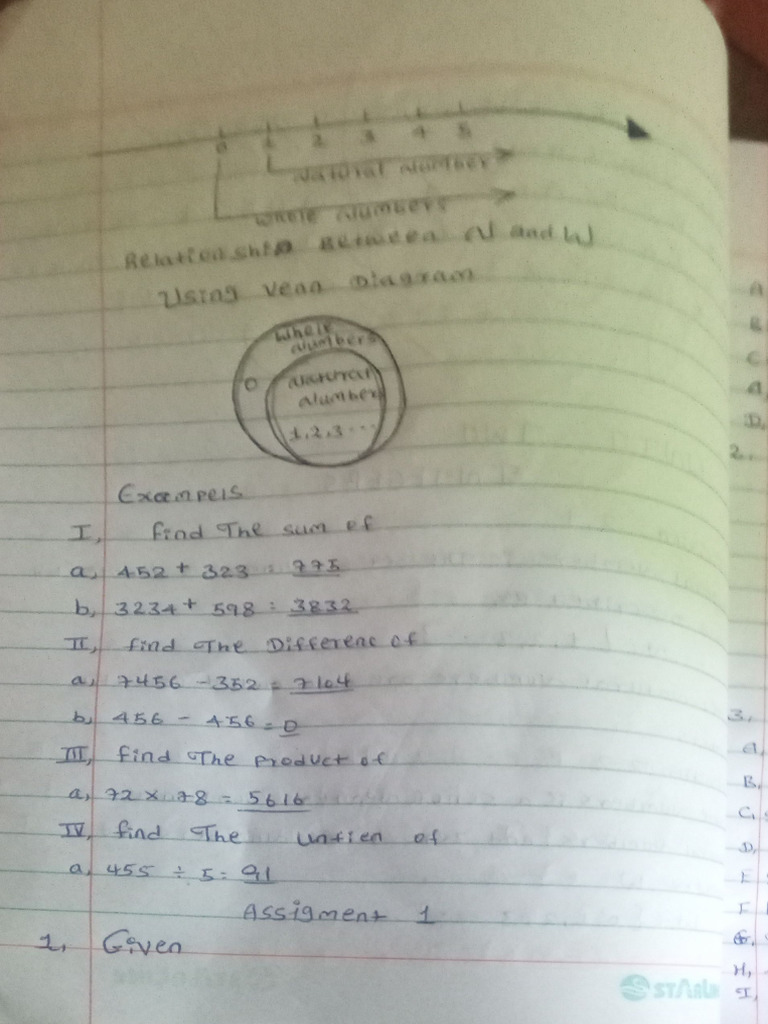 0 1 2 3 4 5
Natural Number
Whole Numbers
Relationship Between N and W
Using Venn Diagram
Whole
Numbers
0
Natural
Number
1,2,3...
Exampels
I, find The sum of
a, 452 + 323 = 775
b, 3234 + 598 = 3832
II, find The Differenc of
a, 7456 - 352 = 7104
b, 456 - 456 = 0
III, find The Product of
a, 72 × 78 = 5616
IV, find The of
a, 455 ÷ 5 = 91
Assigment 1
1, Given
A
B
C
D,
2.
3.
A,
B,
C,
D,
E
F
G,
H,
I,